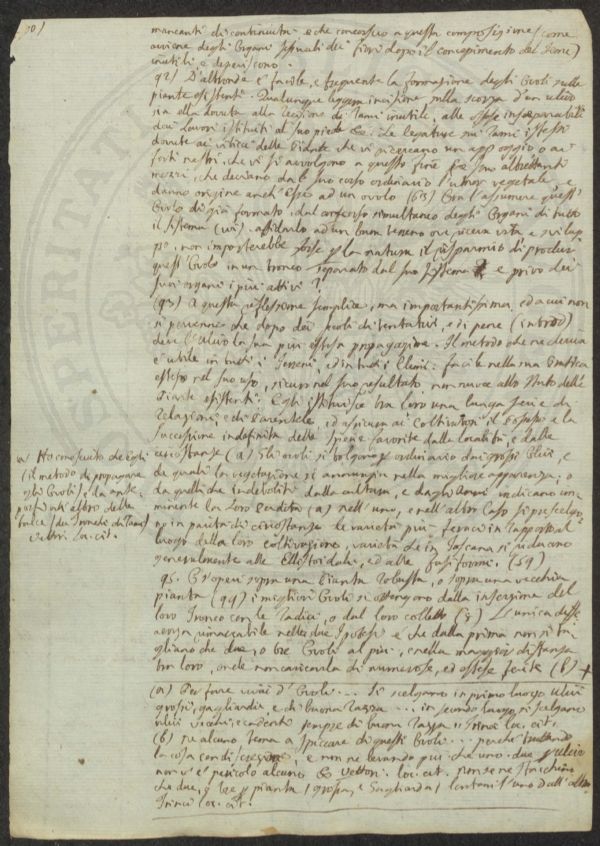 mancanti di continuità e che concorsero a questa composizione (come
avviene degli Organi sessuali dei fiori dopo il concepimento del seme)
inutili, e deperiscono.
92) D'altronde è facile, e frequente la formazione degli Ovoli sulle
piante esistenti. Qualunque leggera incisione sulla scorza d'un ulivo
sia ella dovuta alla lezione di rami inutile, alle offese inseparabili
dai lavori istituiti al suo piede &c. Le legature sui rami istessi
dovute ai vitici delle Piante che vi ricercano un appoggio o ai
forti nastri, che vi si avvolgono a questo fine sono altrettanti
mezzi, che deviano dal suo corso ordinario l'umor vegetale, e
danno origine anch'essi ad un ovolo (63) Con l'assumere quest'
Ovolo di già formato dal concorso simultaneo degli Organi di tutto
il sistema affidarlo ad un buon terreno ove riceva vita e svilup
po, non importerebbe forse alla natura il risparmio di produr
quest'Ovolo in un tronco separato dal suo sistema e privo dei
suoi organi i più attivi?
(93) A questa riflessione semplice, ma importantissima, ed a cui non
si pervenne che dopo dei secoli di tentativi, e di pene (introd)
deve l'Ulivo la sua più estesa propagazione. Il metodo che ne deriva
è utile in tutti i Terreni, ed in tutti i Climi: facile nella sua pratica
esteso nel suo uso, sicuro nel suo resultato non nuoce allo stato delle
Piante esistenti: Egli istituisce tra loro una lunga serie di
Relazioni, e di Parentele, ed assicura ai Coltivatori il possesso e la
successione indefinita delle specie favorite dalla località, e dalle
circostanze (a) Gli ovoli si tolgono ordinario dai grossi Ulivi, e
de quali la vegetazione si annunzia nella migliore apparenza; o
da quelli che indeboliti dalla cultura, e dagli anni indicano
la loro caduta (a) nell'uno, e nell'altro Caso si prescelgo
no in parità di circostanze le varietà più feraci in rapporto al
luogo della loro coltivazione, varietà che in Toscana si riducono
generalmente alle Ellissoidali, ed alle fusiformi. (59)
95. O s'operi sopra una Pianta robusta, o sopra una vecchia
pianta (94) i migliori Ovoli si ottengono dalla inserzione del
loro Tronco con le Radici, o dal loro colletto L'unica diffe
renza rimarcabile nelle due Ipotesi è che dalla prima non si ta
gliano che due, o tre Ovoli al più, e nella maggior distanza
tra loro, onde non caricarla di numerose, ed estese ferite (b) +
(a) Per fare vivai d'Ovoli ... si scelgano in primo luogo ulivi
grossi, gagliardi, e di buona razza ... in secondo luogo si scelgano
ulivi vecchi, e cadenti sempre di buona razza. Trinci loc. cit.
(b) Se alcuno tema a spiccare di questi Ovoli ... perchè trattando
la cosa con discrezione, e non ne levando più che uno due
non v'è pericolo alcuno &c Vettori loc. cit. non se ne stacchino
che due, o tre p pianta (grossa, e Gagliarda) lontani l'uno dall'altro
Trinci loc. cit.
a) Ho conosciuto che egli
(il metodo di propagare
gli Ovoli) è da ante
porsi ad altro delle
talee (da Tronchi di Rami)
Vettori loc. cit.